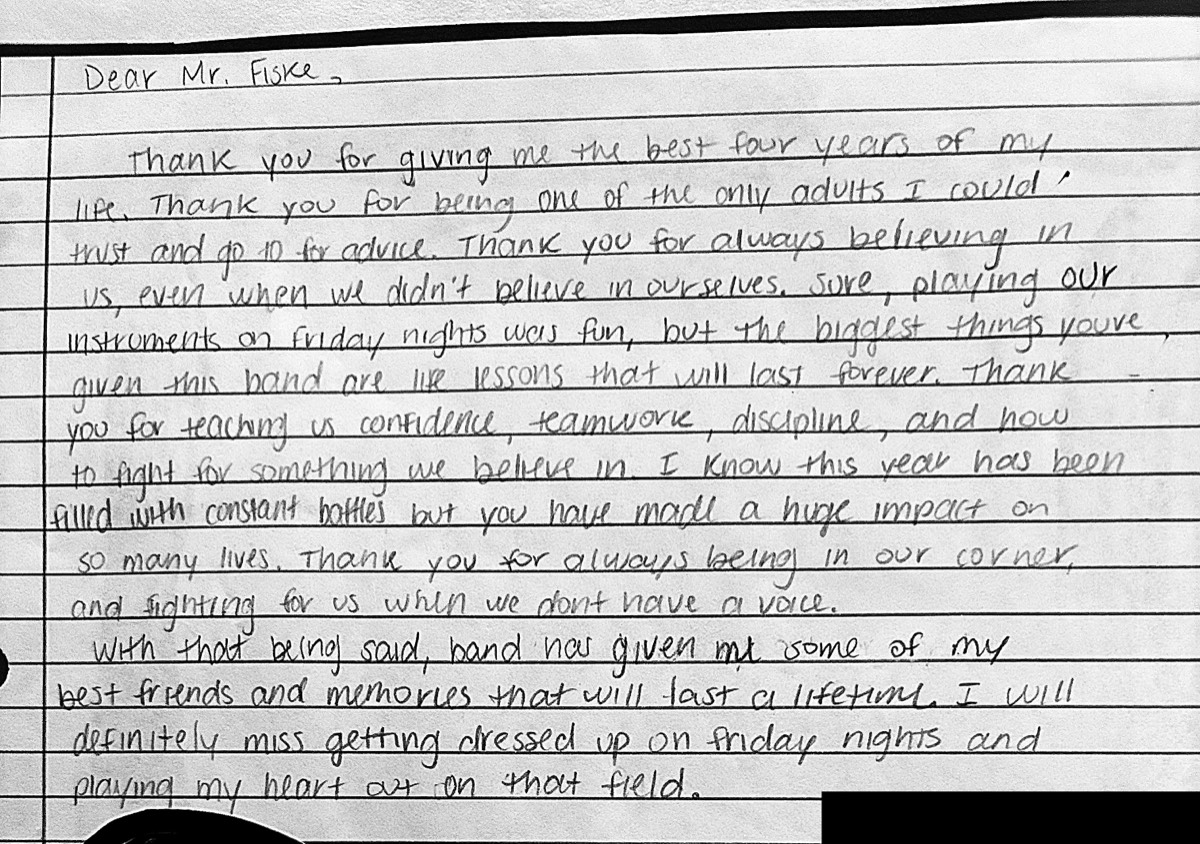 Dear Mr. Fiske,
Thank you for giving me the best four years of my
life. Thank you for being one of the only adults I could
trust and go to for advice. Thank you for always believing in
us, even when we didn't believe in ourselves. Sure, playing our
instruments on Friday nights was fun, but the biggest things youve
given this band are life lessons that will last forever. Thank
you for teaching us confidence, teamwork, discipline, and how
to fight for something we believe in. I know this year has been
filled with constant battles but you have made a huge impact on
so many lives. Thank you for always being in our corner,
and fighting for us when we dont have a voice.
With that being said, band has given me some of my
best friends and memories that will last a lifetime. I will
definitely miss getting dressed up on friday nights and
playing my heart out on that field.